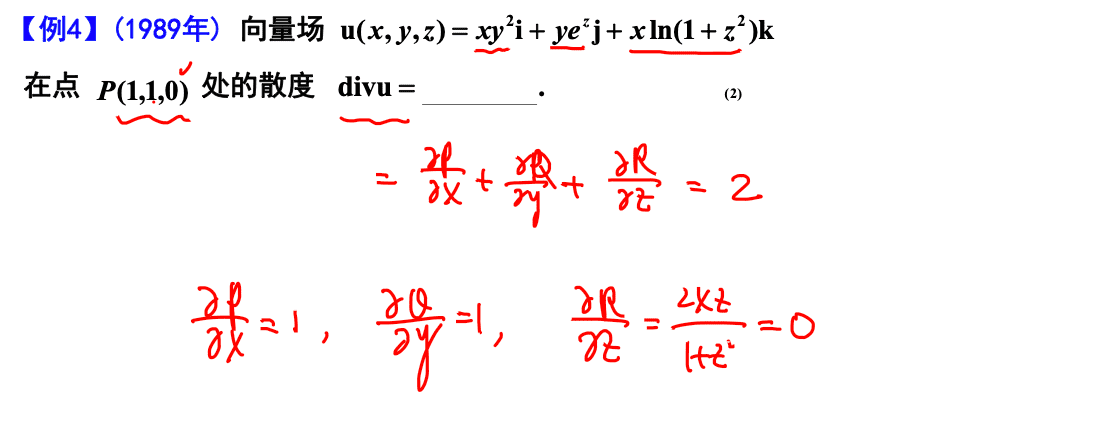 【例4】(1989年) 向量场 u(x,y,z)=xy²i+ye^z j+xln(1+z²)k
在点 P(1,1,0) 处的散度 divu=________. (2)
= ∂P/∂x + ∂Q/∂y + ∂R/∂z = 2
∂P/∂x = 1, ∂Q/∂y = 1, ∂R/∂z = 2xz/1+z² = 0